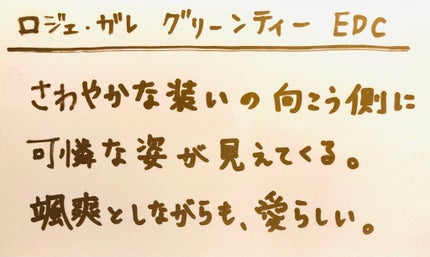 ロジェ・ガレ グリーンティー EDC
さわやかな装いの向こう側に
可憐な姿が見えてくる。
颯爽としながらも、愛らしい。